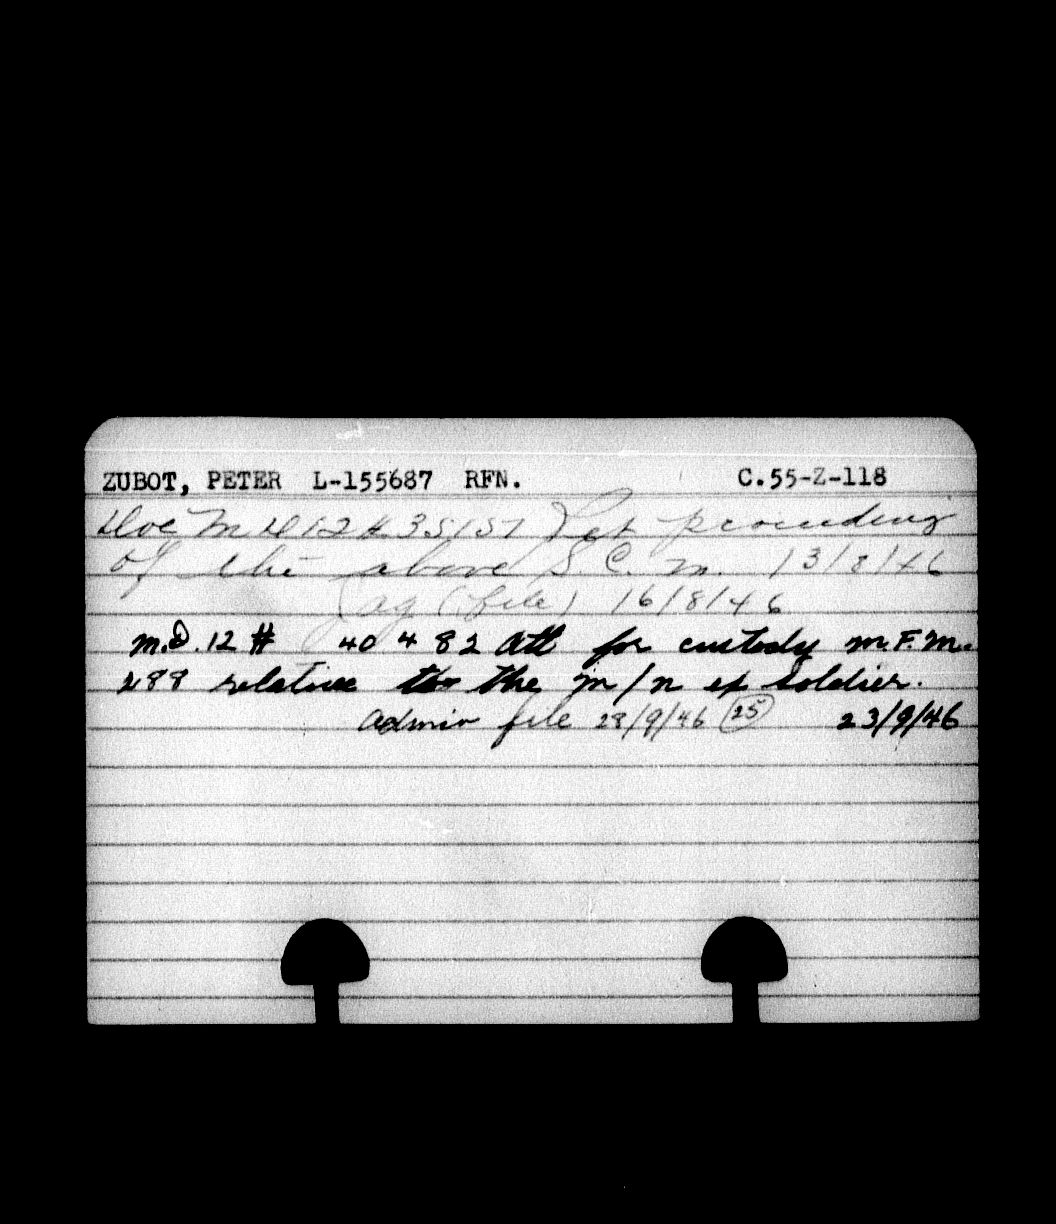 ZUBOT, PETER L-155687 RFN. C.55-Z-118
Doc M D 12 # 35157 Ret proceeding
of the above S.C.M. 13/8/46
Jag (file) 16/8/46
M.D. 12 # 40482 att for custody M.F.M.
288 relative to the m/n ex soldier.
Admin file 28/9/46 25 23/9/46